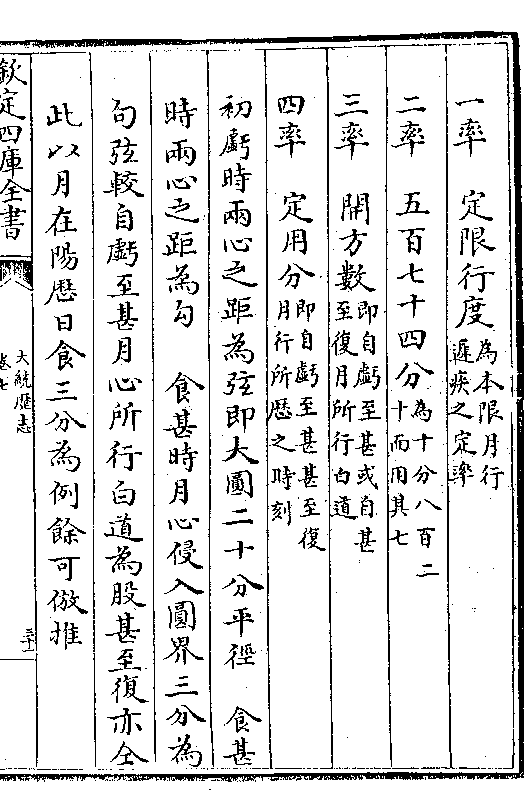 一率　定限行度為本限月行遲疾之定率
二率　五百七十四分為十分八百二十而用其七
三率　開方數即自虧至甚或自甚至復月所行白道
四率　定用分即自虧至甚甚至復月行所歷之時刻
初虧時兩心之距為弦即大圓二十分平徑　食甚
時兩心之距為勾　食甚時月心侵入圓界三分為
句弦較自虧至甚月心所行白道為股甚至復亦仝
此以月在陽厯日食三分為例餘可倣推
欽定四庫全書
大統厯志
卷七